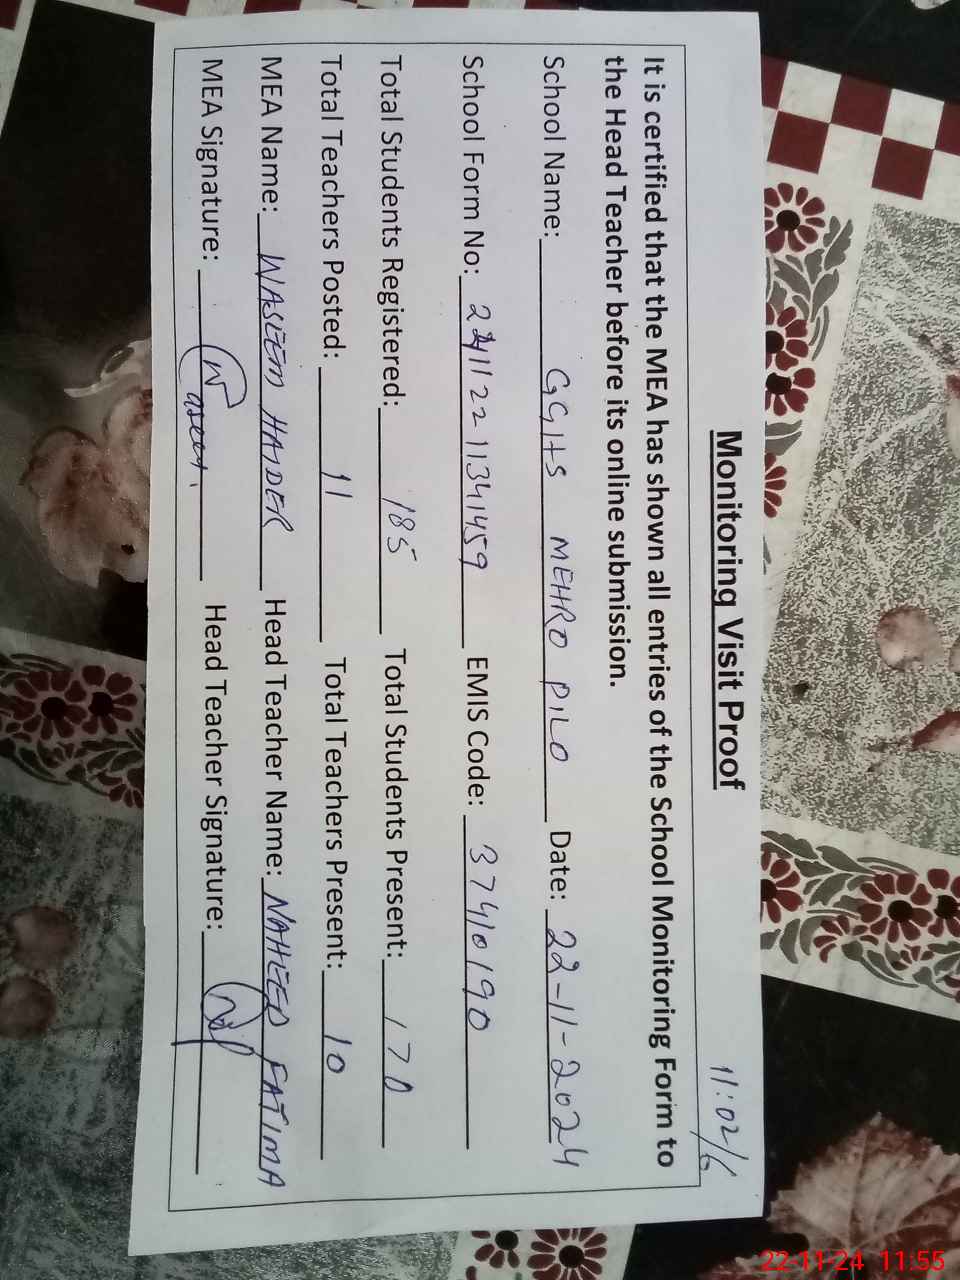 11:02/6
Monitoring Visit Proof
It is certified that the MEA has shown all entries of the School Monitoring Form to
the Head Teacher before its online submission.
School Name: GGHS MEHRO PILO Date: 22-11-2024
School Form No: 22112211341459 EMIS Code: 37410190
Total Students Registered: 185 Total Students Present: 170
Total Teachers Posted: 11 Total Teachers Present: 10
MEA Name: WASEEM HAIDER Head Teacher Name: NAHEED FATIMA
MEA Signature: Waseem Head Teacher Signature:
22-11-24 11:55